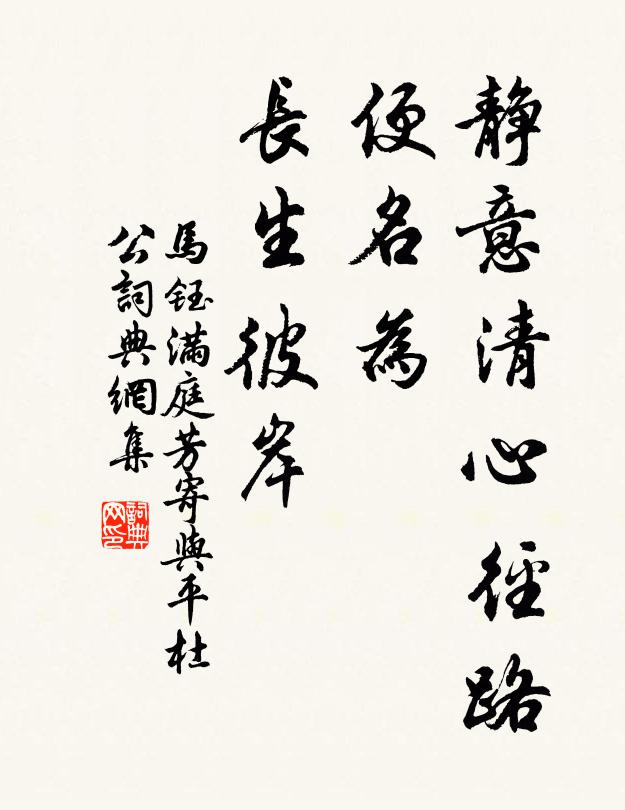 静意清心径路
便名為
長生彼岸
馬鈺满庭芳寄與平杜
公詞典網集
詞典网印